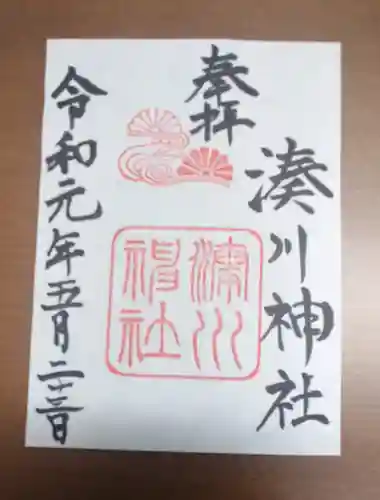 奉拝
湊川神社
湊川神社
令和元年五月二十三日